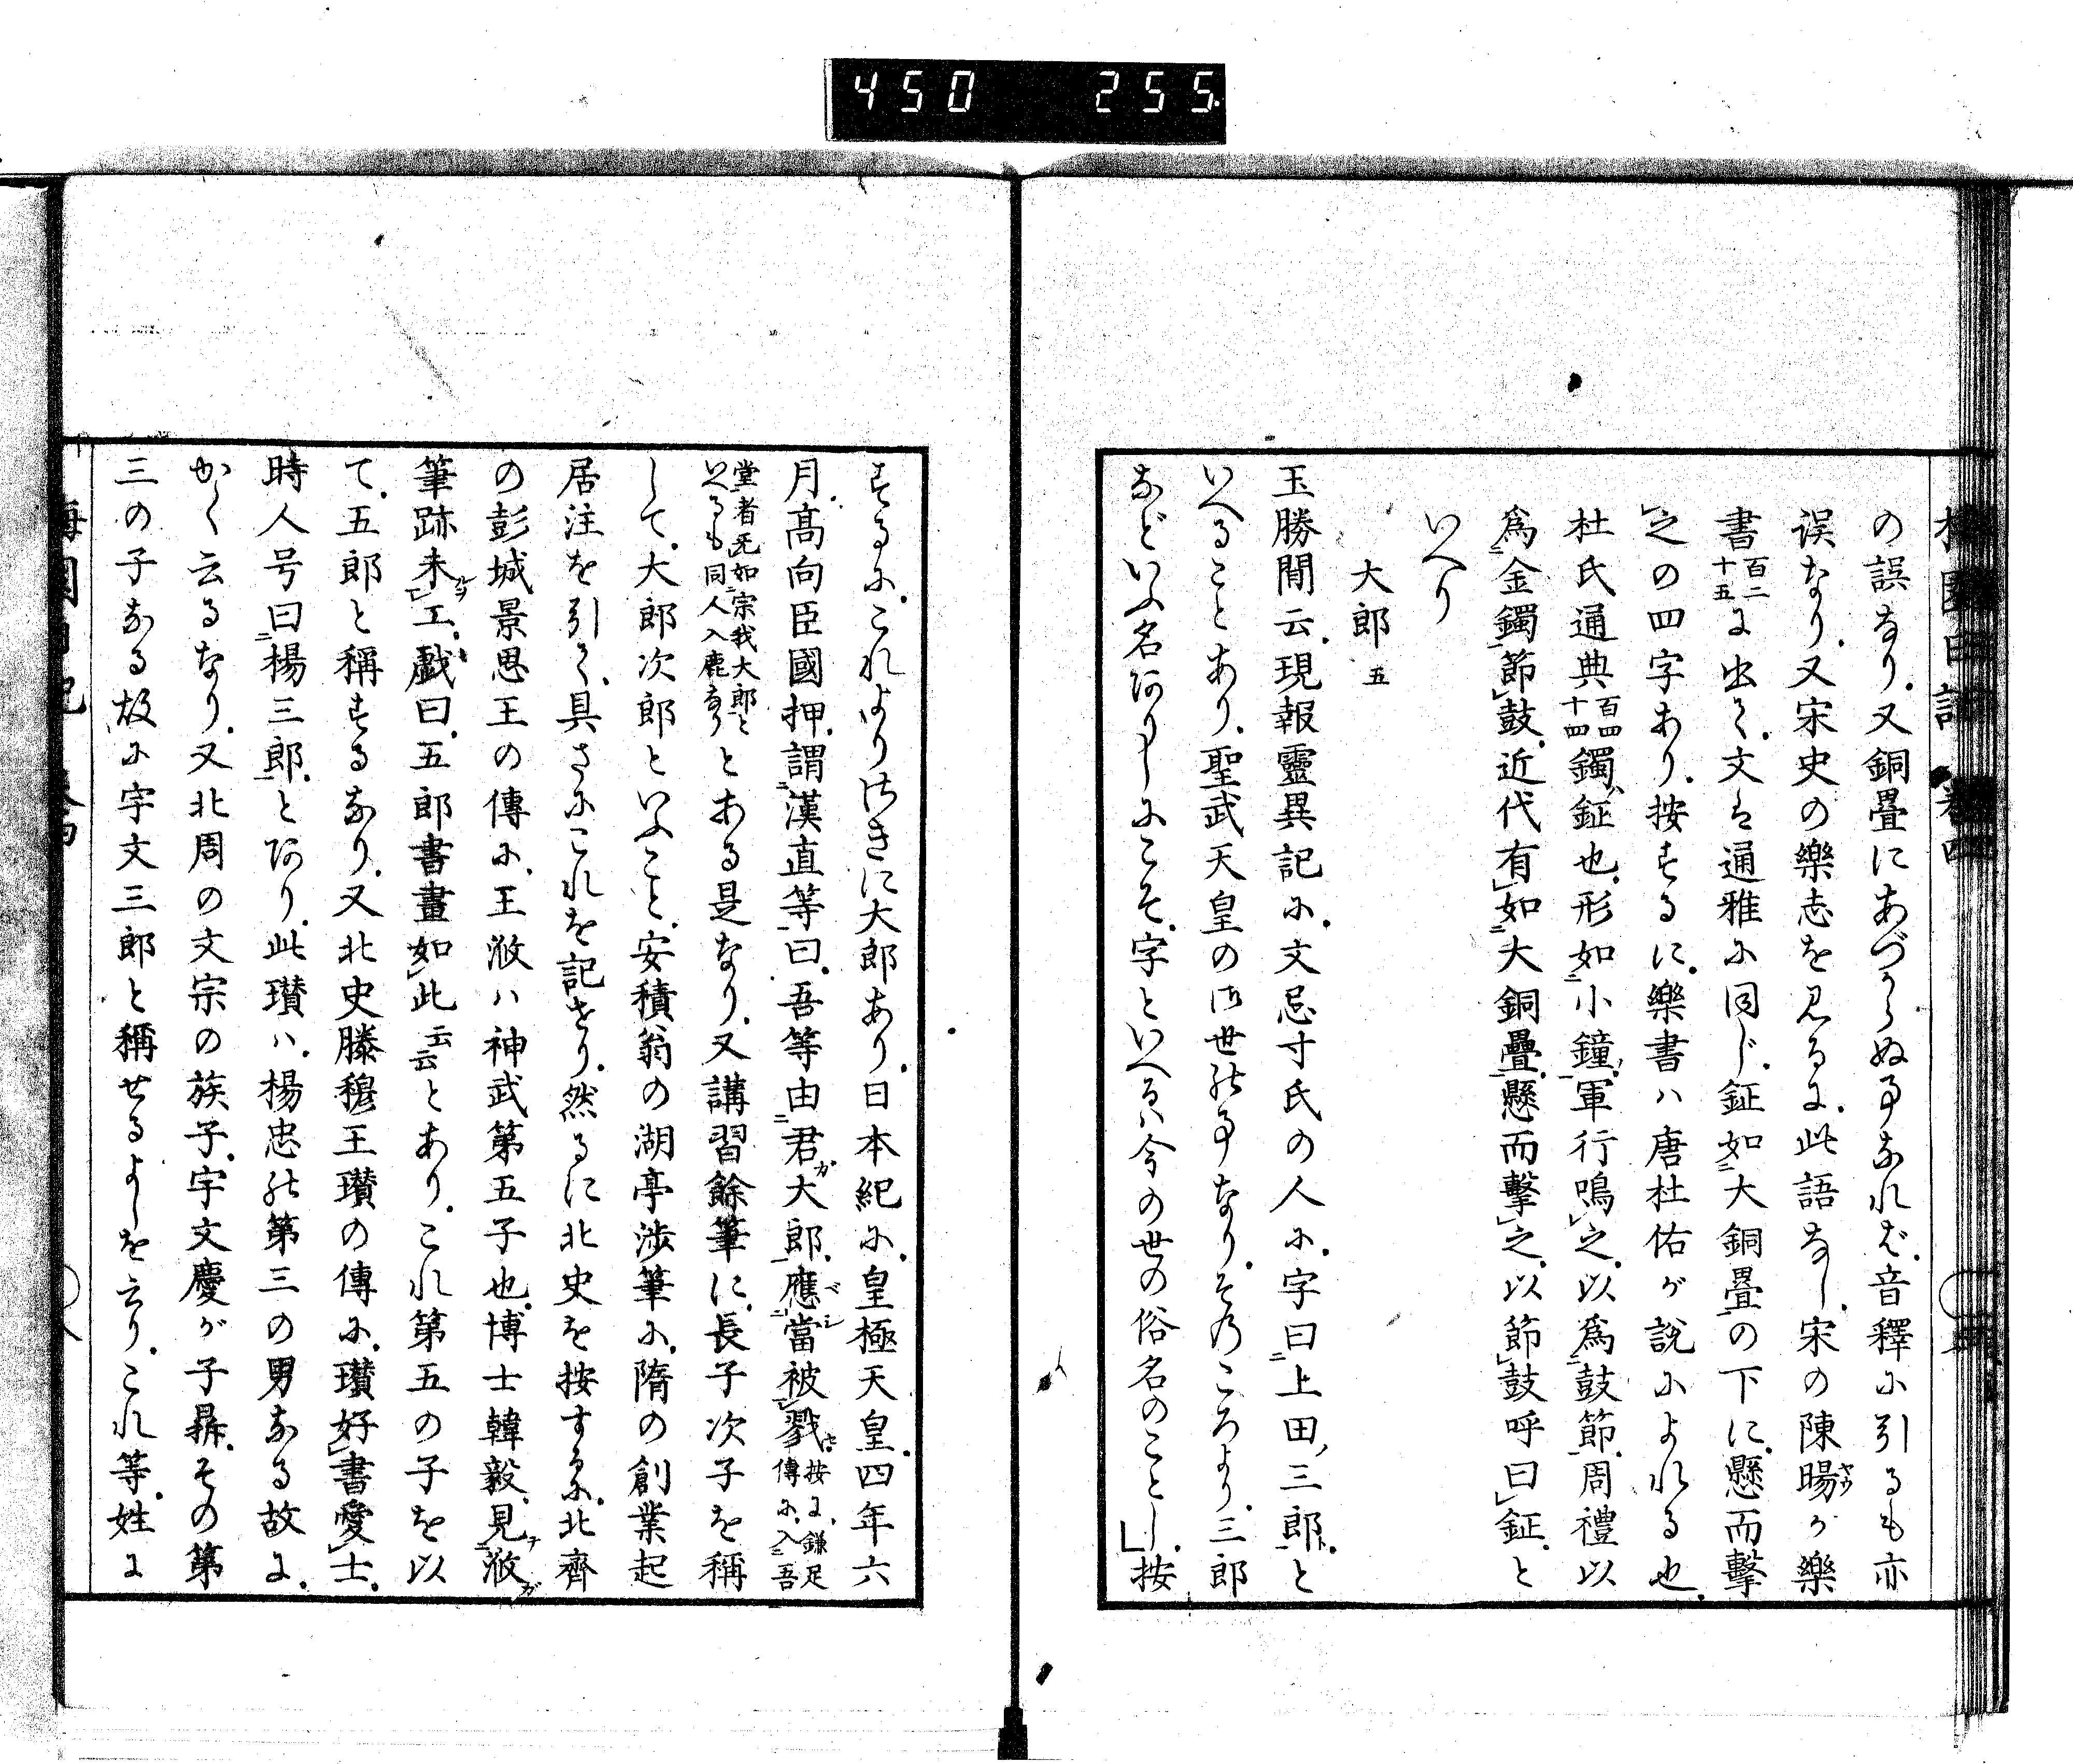 450 255
の誤なり又銅疊にあづからぬ事なれば音釋に引るも亦
誤なり又宋史の樂志を見るに此語なし宋の陳暘が樂
書百二十五に出て文は通雅に同じ鉦如大銅疊の下に懸而擊
之の四字あり按ずるに樂書ハ唐杜佑が説によれる也
杜氏通典百四十四鐲鉦也形如小鐘軍行鳴之以爲鼓節周禮以
爲金鐲節鼓近代有如大銅疊懸而擊之以節鼓呼曰鉦と
いへり
大郎 五
玉勝間云現報靈異記に文忌寸氏の人に字曰上田三郎と
いへることあり聖武天皇の御世の事なりそのころより三郎
などいふ名ありしにこそ字といへるハ今の世の俗名のことし」按
ずるにこれよりさきに大郎あり日本紀に皇極天皇四年六
月高向臣國押謂漢直等曰吾等由君大郎應當被戮按に鎌足傳に入吾
堂者无如宗我大郎といへるも同人入鹿なりとある是なり又講習餘筆に長子次子を稱
して大郎次郎といふこと安積翁の湖亭渉筆に隋の創業起
居注を引て具さにこれを記せり然るに北史を按するに北齊
の彭城景思王の傳に王浟ハ神武第五子也博士韓毅見浟
筆跡未工戯曰五郎書畫如此云云とありこれ第五の子を以
て五郎と稱するなり又北史滕穆王瓚の傳に瓚好書愛士
時人号曰楊三郎とあり此瓚ハ楊忠の第三の男なる故に
かく云るなり又北周の文宗の族子宇文慶が子その第
三の子なる故に宇文三郎と稱せるよしを云りこれ等姓に